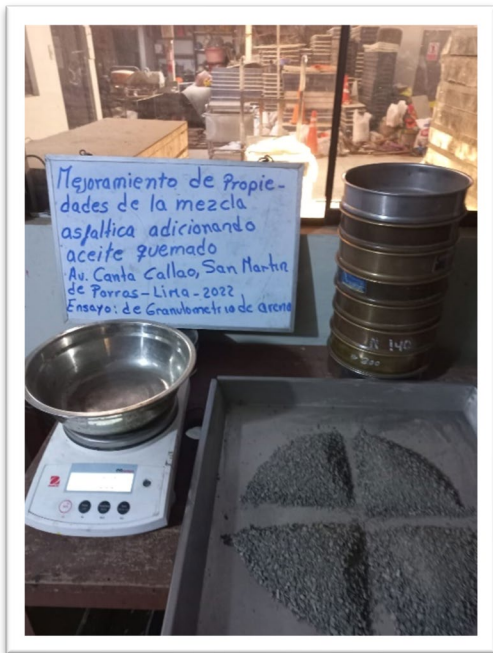 Mejoramiento de Propie-
dades de la mezcla
asfaltica adicionando
aceite quemado
Av. Canta Callao, San Martin
de Porras - Lima - 2022
Ensayo: de Granulometria de arena
N 140